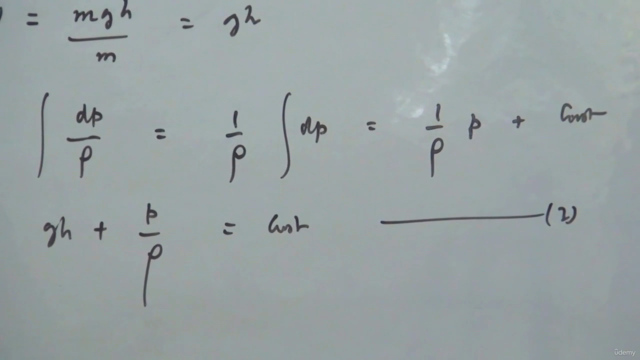 ) = mgh/m = gh
∫ dp/ρ = 1/ρ ∫ dp = 1/ρ p + Const
gh + p/ρ = Const ——— (2)
Udemy